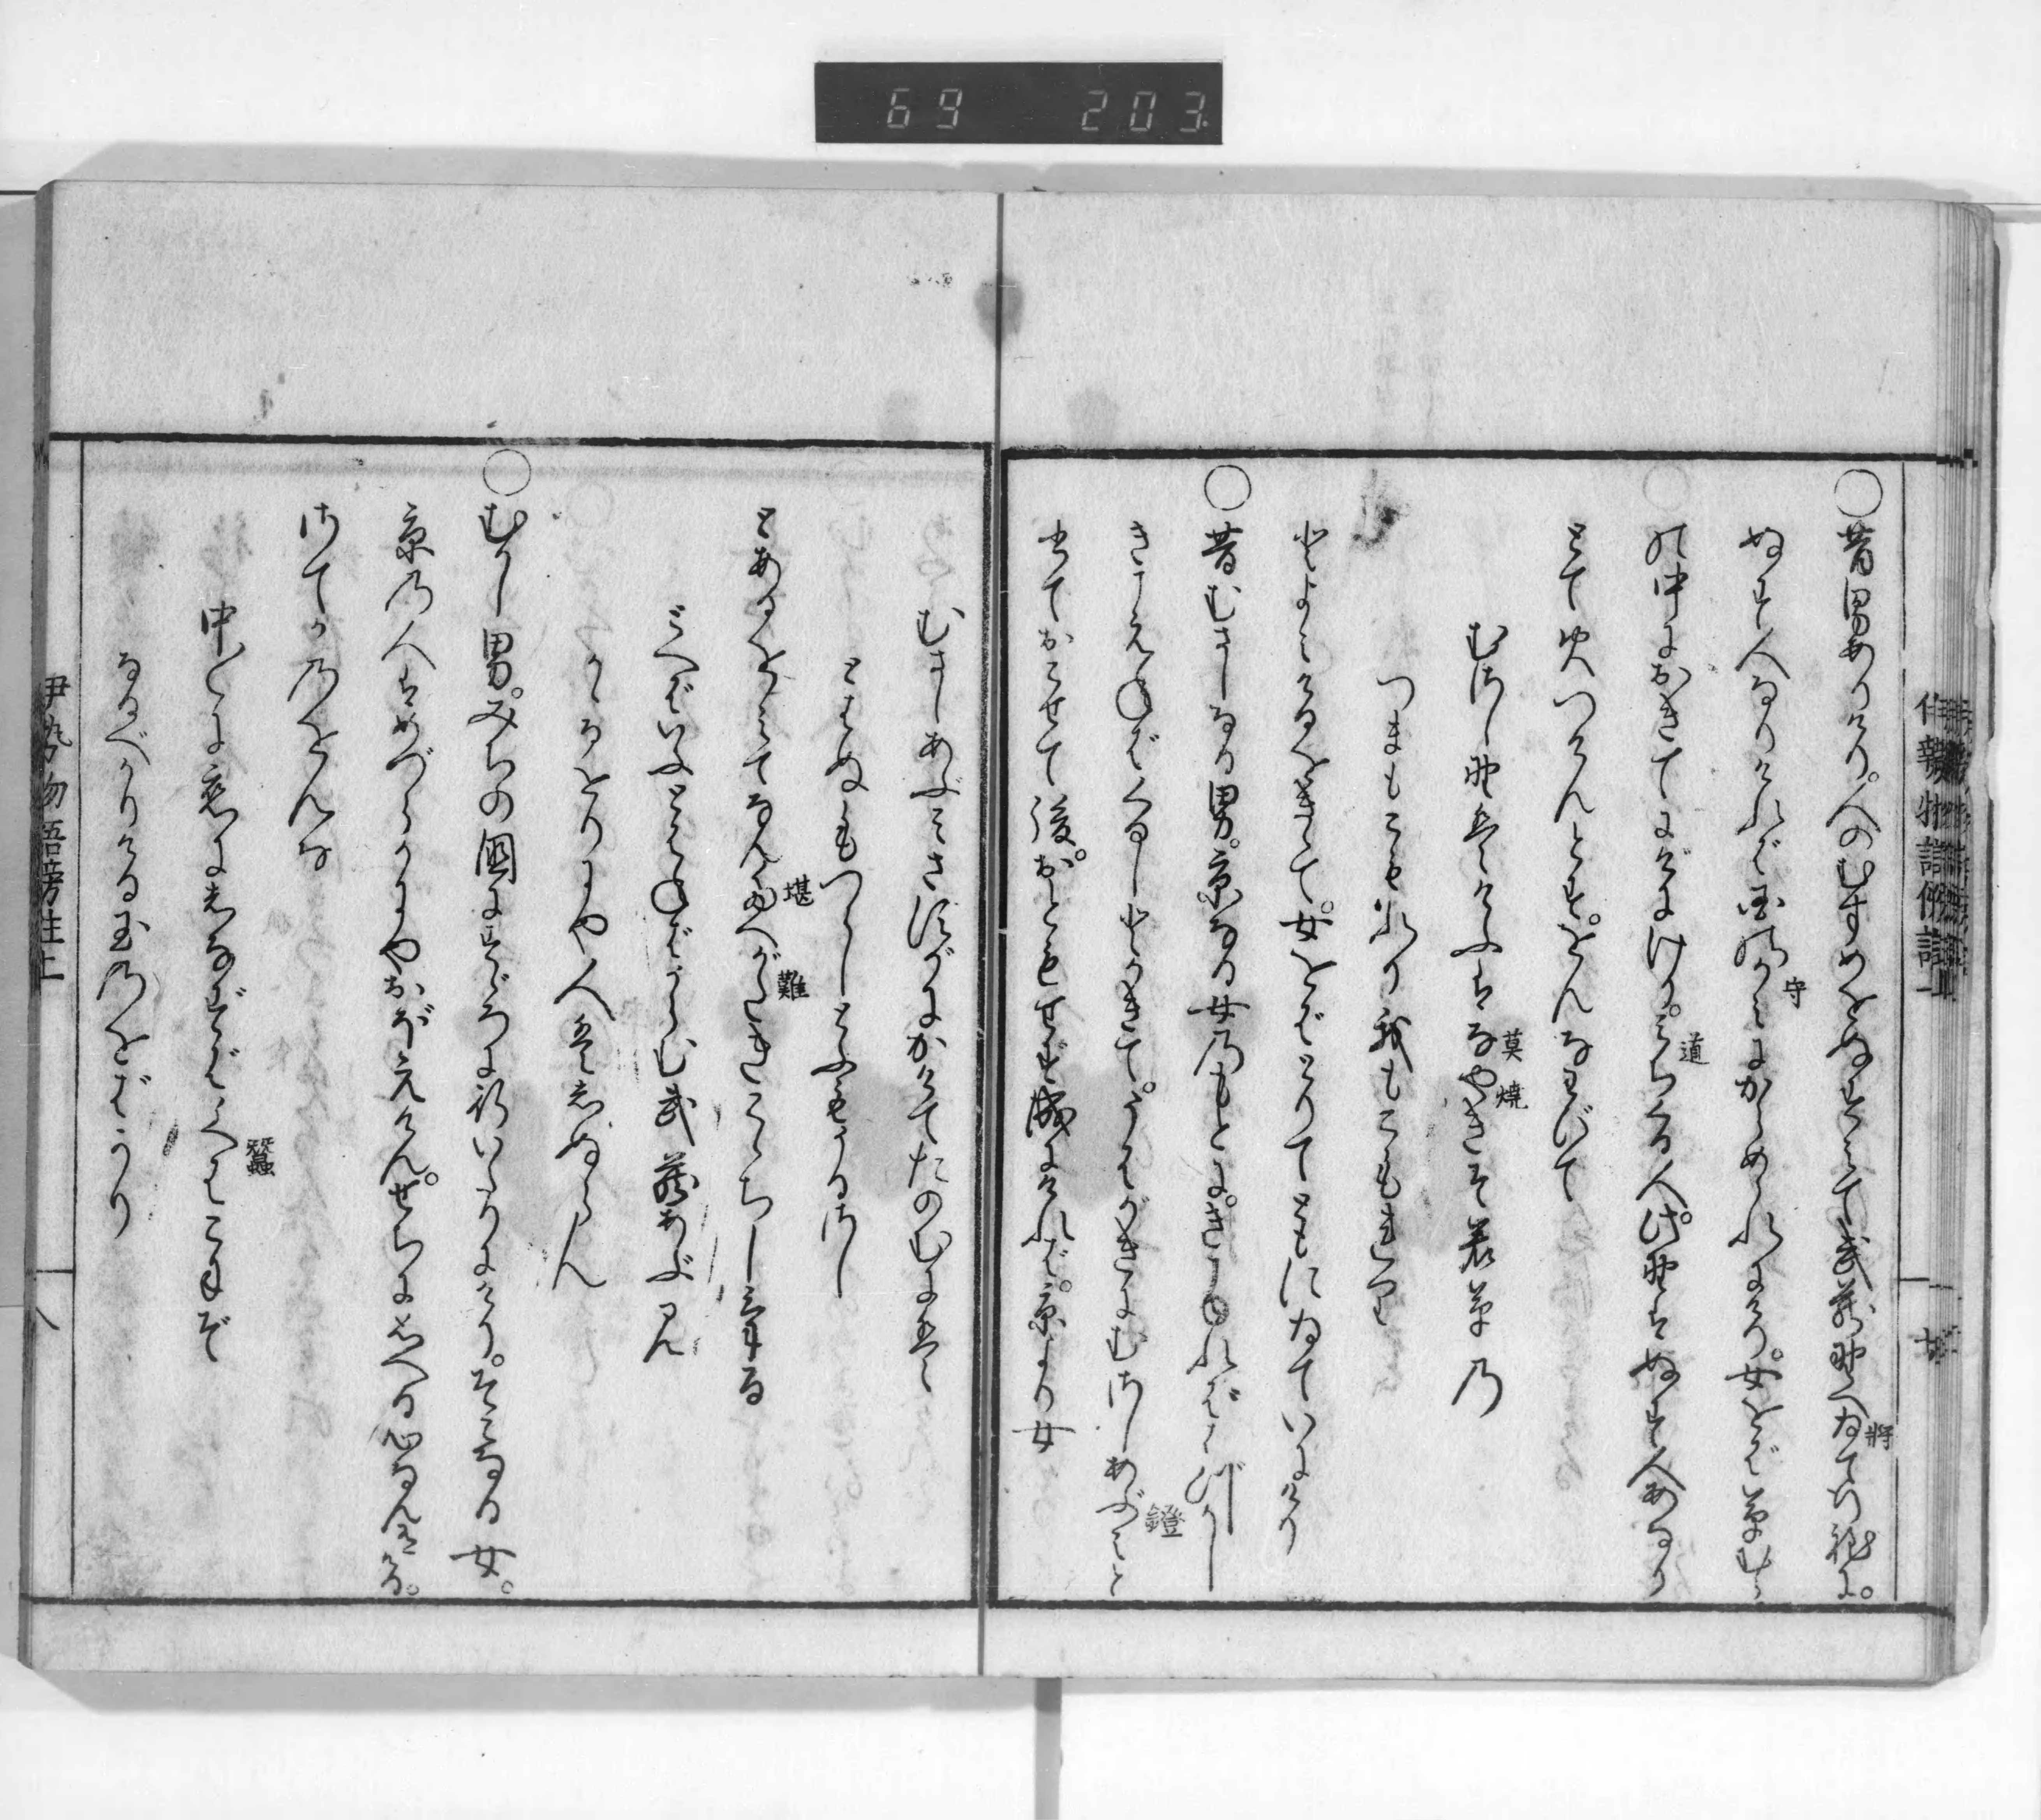 69 203
○昔男ありけり。人のむすめをぬすみて武蔵野へゐて行程に。
將
ぬす人なりければ国のかみにからめられにけり。女をば草むら
守
の中におきてにげにけり。みちくる人。此野はぬす人あなり
道
とて火つけんとす。をんなわびて
むさし野はけふはなやきそ若草乃
莫 燒
つまもこもれり我もこもれり
とよみけるをきゝて。女をばとりてともにゐていにけり
○昔むさしなる男。京なる女乃もとに。きこゆればはづかし
きこえねばくるしとかきて。うはがきにむさしあぶみと
鐙
かきておこせて後。おともせず成にければ。京より女
むさしあぶみさすがにかけてたのむには
とはぬもつらしとふもうるさし
とあるをみてなんたへがたきこゝちしける
堪 難
とへばいふとはねばうらむ武蔵あぶみ
かゝるをりにや人はしぬらん
○むかし男。みちの國にすゞろに行いたりにけり。そこなる女。
京乃人はめづらかにやおぼえけん。せちにおもへる心なんありける。
さてかのをんな
中〳〵に恋にしなずはくはこにぞ
蠶
なるべかりける玉乃をばかり